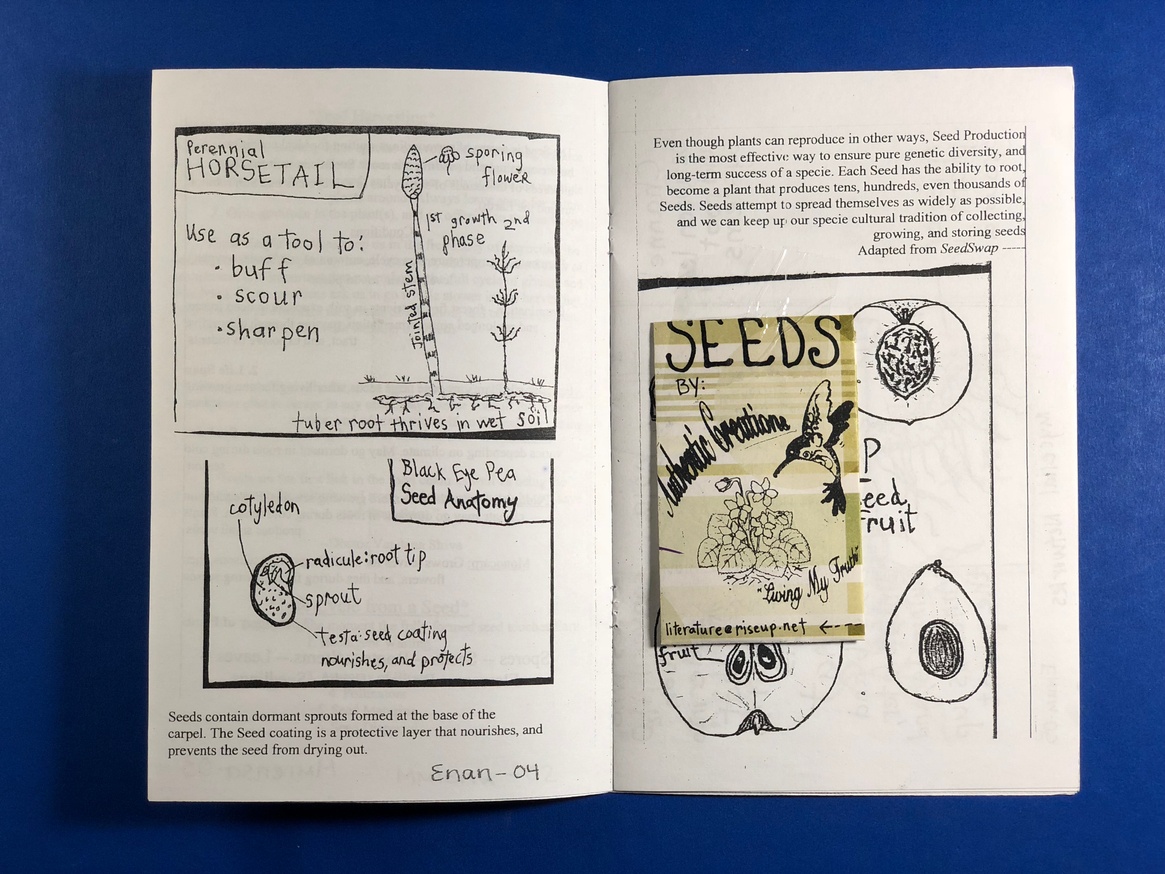 Perennial
HORSETAIL
sporing
flower
1st growth 2nd
phase
Use as a tool to:
• buff
• scour
• sharpen
Jointed stem
tuber root thrives in wet soil
Black Eye Pea
Seed Anatomy
cotyledon
radicule: root tip
sprout
testa: seed coating
nourishes, and protects
Seeds contain dormant sprouts formed at the base of the
carpel. The Seed coating is a protective layer that nourishes, and
prevents the seed from drying out.
Enan-04
Even though plants can reproduce in other ways, Seed Production
is the most effective way to ensure pure genetic diversity, and
long-term success of a specie. Each Seed has the ability to root,
become a plant that produces tens, hundreds, even thousands of
Seeds. Seeds attempt to spread themselves as widely as possible,
and we can keep up our specie cultural tradition of collecting,
growing, and storing seeds
Adapted from SeedSwap -----
SEEDS
BY:
Authentic Creations
"Living My Truth"
literature@riseup.net ←---
P
eed
fruit
fruit